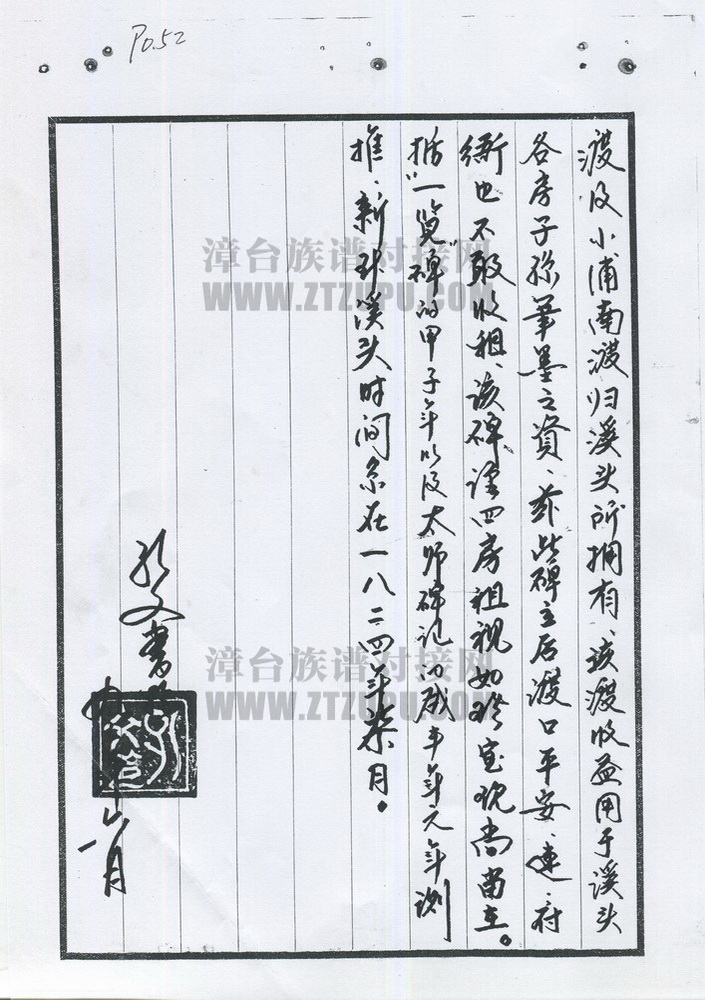 P0.52
渡及小浦南渡归溪头所拥有、该渡收益用于溪头
各房子孙笔墨之资、亦此碑立后渡口平安、连、府
衙也不敢收租、该碑谨四房祖视如珍宝现尚留在。
据“一览碑”的甲子年以及太师碑记的咸丰年元年测
推、新 溪头时间系在一八二四年柒月。
文書
月
漳台族谱对接网
WWW.ZTZUPU.COM
漳台族谱对接网
WWW.ZTZUPU.COM